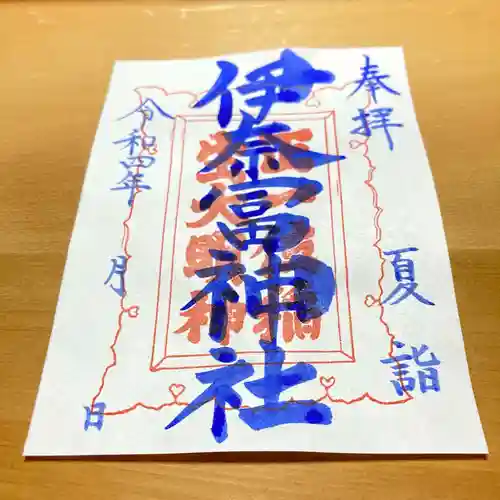 奉拝
夏詣
伊奈富神社
令和四年
月
日